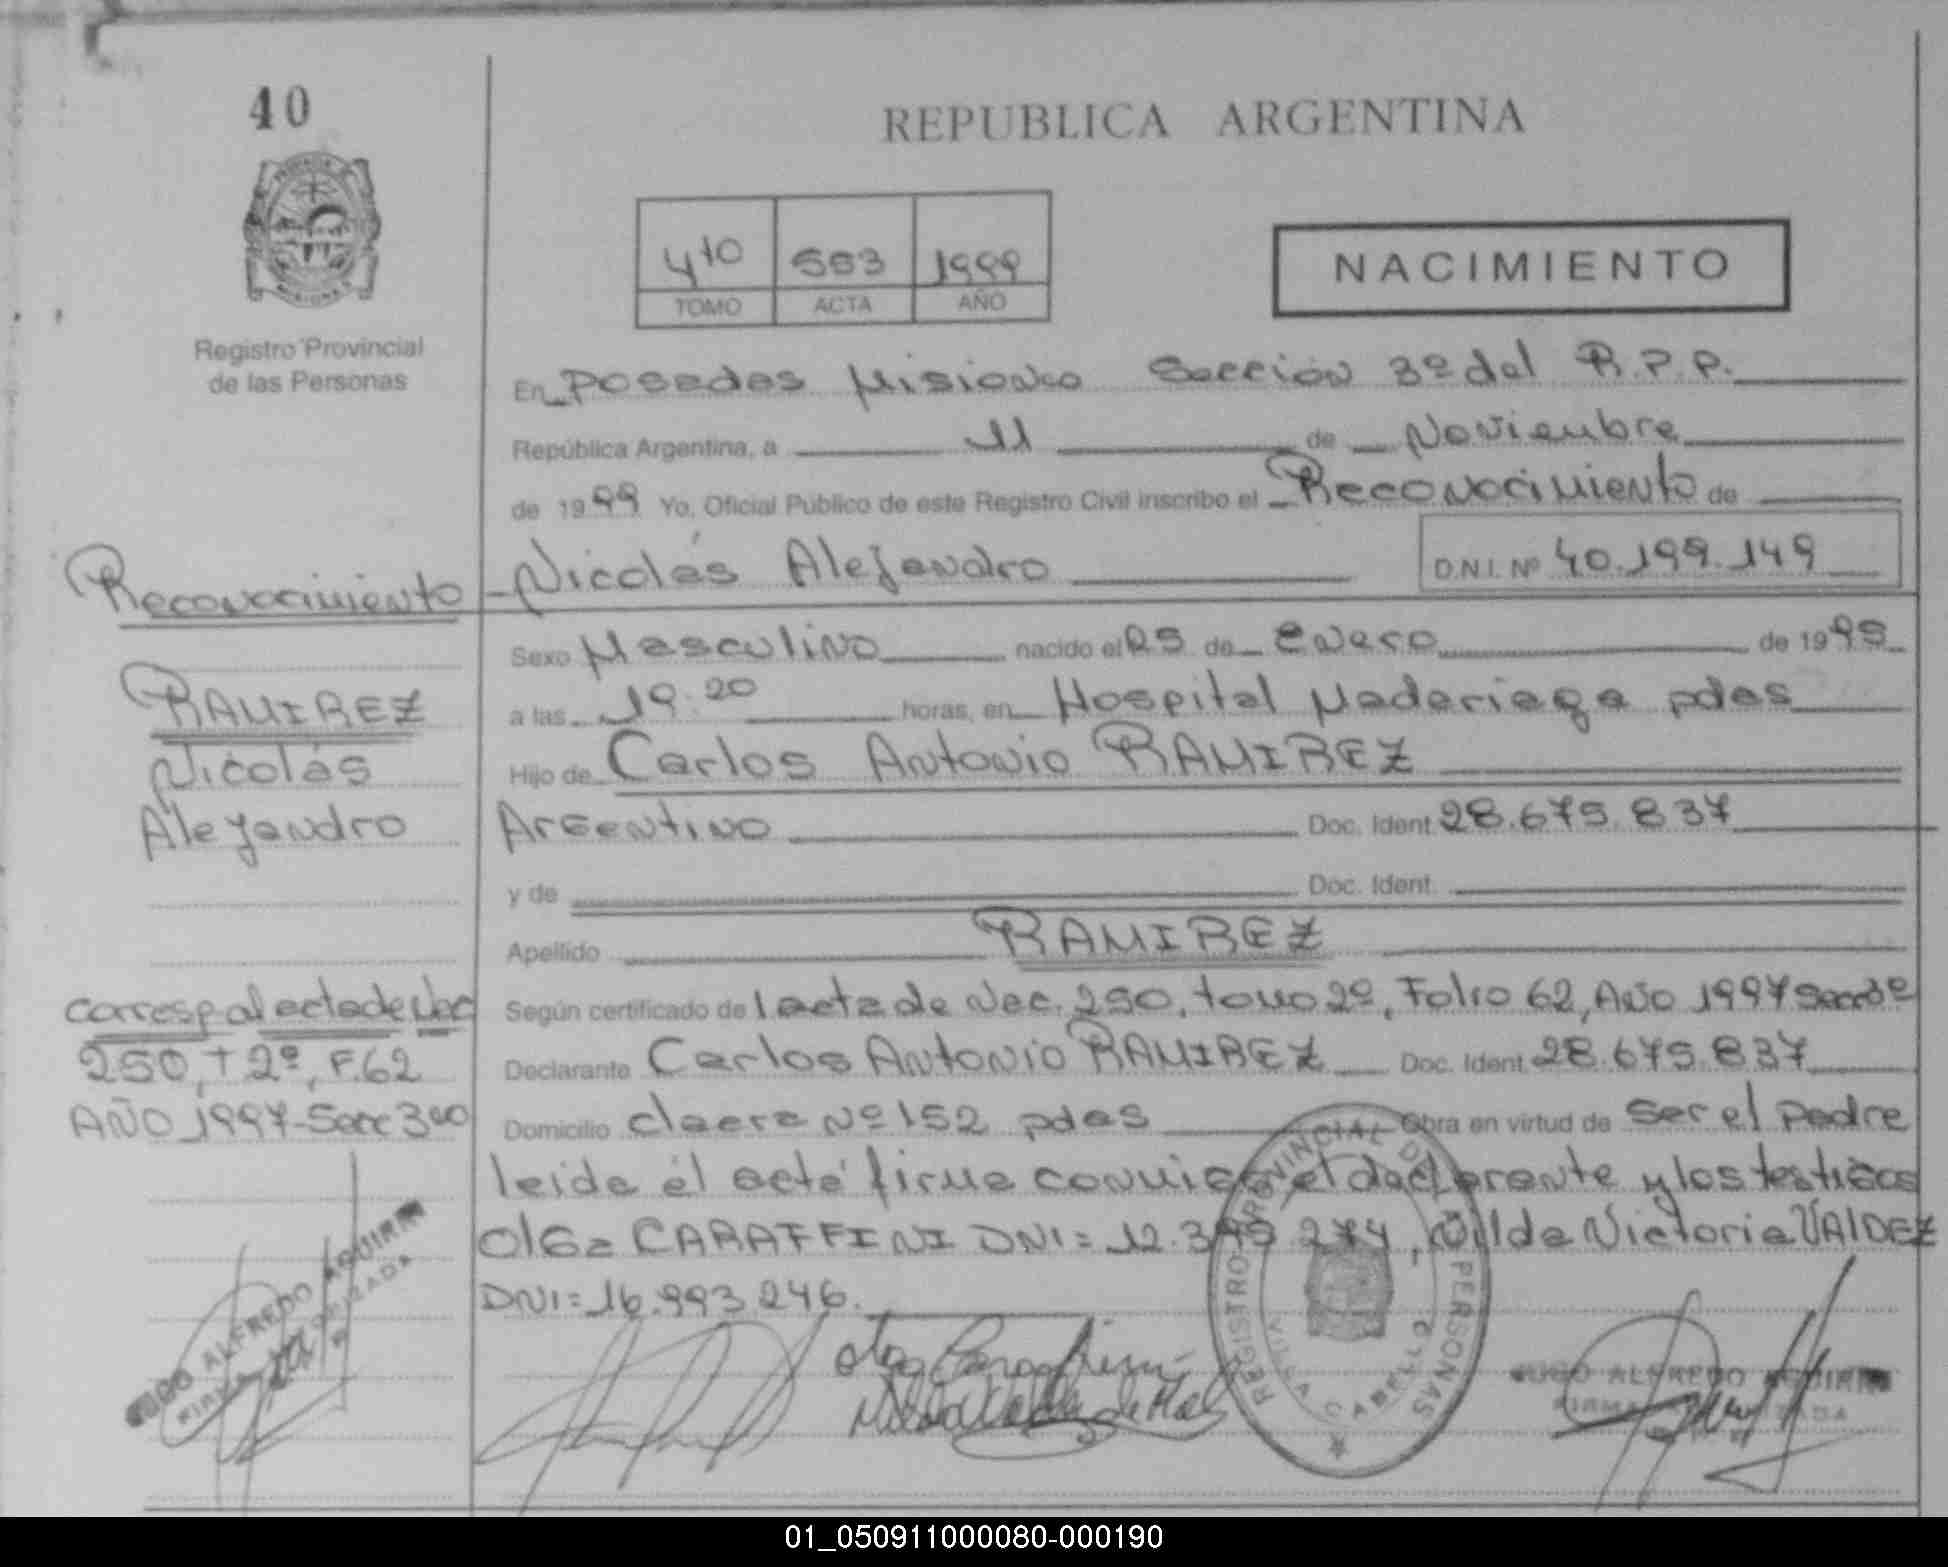 40
REPUBLICA ARGENTINA
4to 553 1999
TOMO ACTA AÑO
NACIMIENTO
Registro Provincial
de las Personas
En Posadas Misiones Sección 3º del R.P.P.
República Argentina, a 11 de Noviembre
de 1999 Yo, Oficial Público de este Registro Civil inscribo el Reconocimiento de
Nicolás Alejandro D.N.I. Nº 40.199.149
Reconocimiento
RAMIREZ
Nicolás
Alejandro
Sexo Masculino nacido el 25 de Enero de 1995
a las 19.20 horas, en Hospital Madariaga pdas
Hijo de Carlos Antonio RAMIREZ
Argentino Doc. Ident. 28.675.837
y de Doc. Ident.
Apellido RAMIREZ
corresp al acta de Nac
250, T 2º, F.62
AÑO 1997-Secc 3
Según certificado de acta de Nac. 250, tomo 2º, Folio 62, Año 1997 Secc 3º
Declarante Carlos Antonio RAMIREZ Doc. Ident. 28.675.837
Domicilio Nº 152 pdas Obra en virtud de Ser el padre
leida el acta firma conmigo el declarante y los testigos
Olga CARAFFINI DNI= 12. 274, Nilda Victoria VALDEZ
DNI= 16.993.246.
HUGO ALFREDO AGUIRRE
FIRMA AUTORIZADA
Olga Caraffini
REGISTRO PROVINCIAL DE PERSONAS
CABELLO
HUGO ALFREDO AGUIRRE
FIRMA AUTORIZADA
01_050911000080-000190